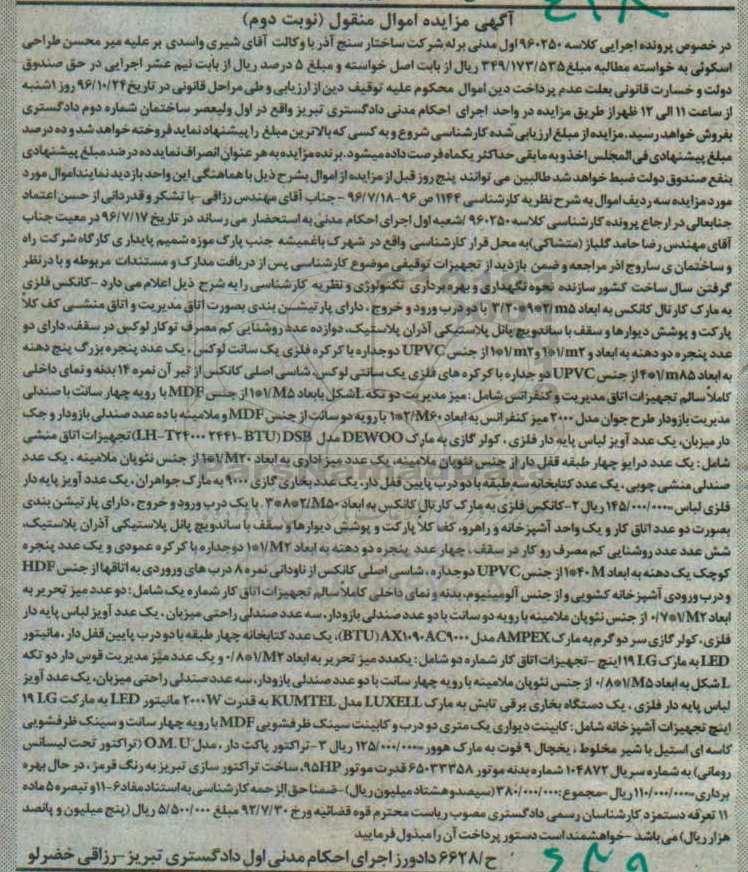 آگهی مزایده اموال منقول (نوبت دوم)
در خصوص پرونده اجرایی کلاسه ۹۶۰۲۵۰ اول مدنی برله شرکت ساختار سنج آذر با وکالت آقای شبیری واسدی بر علیه میر محسن طراحی
اسکوئی به خواسته مطالبه مبلغ ۳۴۹/۱۷۳/۵۳۵ ریال از بابت اصل خواسته و مبلغ ۵ درصد ریال از بابت نیم عشر اجرایی در حق صندوق
دولت و خسارت قانونی بعلت عدم پرداخت دین اموال محکوم علیه توقیف دین از ارزیابی و طی مراحل قانونی در تاریخ ۹۶/۱۰/۲۴ روز ۱شنبه
از ساعت ۱۱ الی ۱۲ ظهر از طریق مزایده در واحد اجرای احکام مدنی دادگستری تبریز واقع در اول ولیعصر ساختمان شماره دوم دادگستری
بفروش خواهد رسید.مزایده از مبلغ ارزیابی شده کارشناسی شروع و به کسی که بالاترین مبلغ را پیشنهاد نماید فروخته خواهد شد و ده درصد
مبلغ پیشنهادی فی المجلس اخذ و به مابقی حداکثر یکماه فرصت داده میشود. برنده مزایده به هر عنوان انصراف نماید ده در صد مبلغ پیشنهادی
بنفع صندوق دولت ضبط خواهد شد طالبین می توانند پنج روز قبل از مزایده از اموال بشرح ذیل با هماهنگی این واحد بازدید نمایند اموال مورد
مورد مزایده سه ردیف اموال به شرح نظریه کارشناسی ۱۱۴۴ ص ۹۶ -۹۶/۷/۱۸ - جناب آقای مهندس رزاقی -با تشکر و قدردانی از حسن اعتماد
جنابعالی در ارجاع پرونده کارشناسی کلاسه ۹۶۰۲۵۰ /شعبه اول اجرای احکام مدنی به استحضار می رساند در تاریخ ۹۶/۷/۱۷ در معیت جناب
آقای مهندس رضا حامد گلباز (متشاکی) به محل قرار کارشناسی واقع در شهرک باغمیشه جنب پارک موزه شمیم پایداری کارگاه شرکت راه
و ساختمان ی ساروج آذر مراجعه و ضمن بازدید از تجهیزات توقیفی موضوع کارشناسی پس از دریافت مدارک و مستندات مربوطه و با در نظر
گرفتن سال ساخت کشور سازنده نحوه نگهداری و بهره برداری تکنولوژی و نظریه کارشناسی را به شرح ذیل اعلام می دارد -کانکس فلزی
به مارک کارتال کانکس به ابعاد ۳/۲۰*۹*۲/m۵ با دو درب ورود و خروج . دارای پارتیشن بندی بصورت اتاق مدیریت و اتاق منشی کف کلا
پارکت و پوشش دیوارها و سقف با ساندویچ پانل پلاستیکی آذران پلاستیک، دوازده عدد روشنایی کم مصرف توکار لوکس در سقف، دارای دو
عدد پنجره دو دهنه به ابعاد و ۱*۱/m۲ و ۱*۱/m۲ از جنس UPVC دوجداره با کرکره فلزی یک سانت لوکس ، یک عدد پنجره بزرگ پنج دهنه
به ابعاد ۴*۱/mA۵ از جنس UPVC دو جداره با کرکره های فلزی یک سانتی لوکس، شاسی اصلی کانکس از تیر آن نمره ۱۴ بدنه و نمای داخلی
کاملاً سالم تجهیزات اتاق مدیریت و کنفرانس شامل : میز مدیریت دو تکه L شکل بابعاد ۱*۱/M۵ از جنس MDF با رویه چهار سانت با صندلی
مدیریت بازودار طرح جوان مدل ۲۰۰۰ میز کنفرانس به ابعاد ۱*۲/M۶۰ با رویه دو سانت از جنس MDF و ملامینه با ده عدد صندلی بازودار و جک
دار میزبان، یک عدد آویز لباس پایه دار فلزی ، کولر گازی به مارک DEWOO مدل DSB (LH-T۲۴۰۰۰ ۲۴۴۱-BTU) تجهیزات اتاق منشی
شامل : یک عدد درایو چهار طبقه قفل دار از جنس نئوپان ملامینه، یک عدد میز اداری به ابعاد ۱*۱/M۲۰ از جنس نئوپان ملامینه . یک عدد
صندلی منشی چوبی ، یک عدد کتابخانه سه طبقه با دو درب پایین قفل دار، یک عدد بخاری گازی ۹۰۰۰ به مارک جواهران، یک عدد آویز پایه دار
فلزی لباس -۱۴۵/۰۰۰/۰۰۰ ریال ۲-کانکس فلزی به مارک کارتال کانکس به ابعاد ۳*۸*۲/M۵۰. با یک درب ورود و خروج ، دارای پارتیشن بندی
بصورت دو عدد اتاق کار و یک واحد آشپزخانه و راهرو، کف کلاً پارکت و پوشش دیوارها و سقف با ساندویچ پانل پلاستیکی آذران پلاستیک،
شش عدد عدد روشنایی کم مصرف رو کار در سقف، چهار عدد پنجره دو دهنه به ابعاد ۱*۱/M۲ دوجداره با کرکره عمودی و یک عدد پنجره
کوچک یک دهنه به ابعاد ۱*۴۰M از جنس UPVC دوجداره، شاسی اصلی کانکس از ناودانی نمره ۸ درب های وروردی به اتاقها از جنس HDF
و درب ورودی آشپزخانه کشویی و از جنس آلومینیوم، بدنه و نمای داخلی کاملاً سالم تجهیزات اتاق کار شماره یک شامل : دو عدد میز تحریر به
ابعاد ۰/۷*۱/M۲ از جنس نئوپان ملامینه با رویه دو سانت با دو عدد صندلی بازودار، سه عدد صندلی راحتی میزبان ، یک عدد آویز لباس پایه دار
فلزی، کولر گازی سر دو گرم به مارک AMPEX مدل BTU) AX۱۰۹۰AC۹۰۰۰)، یک عدد کتابخانه چهار طبقه با دو درب پایین قفل دار ، مانیتور
LED به مارک LG ۱۹ اینچ -تجهیزات اتاق کار شماره دو شامل : یکعدد میز تحریر به ابعاد ۰/۸*۱/M۲ و یک عدد میز مدیریت قوس دار دو تکه
L شکل به ابعاد ۰/۸*۱/M۵ از جنس نئوپان ملامینه با رویه چهار سانت با دو عدد صندلی بازودار، سه عدد صندلی راحتی میزبان، یک عدد آویز
لباس پایه دار فلزی ، یک دستگاه بخاری برقی تابش به مارک LUXELL مدل KUMTEL به قدرت ۲۰۰۰W مانیتور LED به مارک LG ۱۹
اینچ تجهیزات آشپزخانه شامل : کابینت دیواری یک متری دو درب و کابینت سینک ظرفشویی MDF با رویه چهار سانت و سینک ظرفشویی
کاسه ای استیل با شیر مخلوط ، یخچال ۹ فوت به مارک هوور -۱۲۵/۰۰۰/۰۰۰ ریال ۳-تراکتور پاکت دار ، مدل O.M.U (تراکتور تحت لیسانس
رومانی) به شماره سریال ۱۰۴۸۷۲ شماره بدنه موتور ۶۵۰۳۳۳۵۸ قدرت موتور ۹۵HP، ساخت تراکتور سازی تبریز به رنگ قرمز ، در حال بهره
برداری -۱۱۰/۰۰۰/۰۰۰ ریال -مجموع: ۳۸۰/۰۰۰/۰۰۰ (سیصد و هشتاد میلیون ریال) -ضمنا حق الزحمه کارشناسی به استناد مفاد ۶-۱۱ و تبصره ۵ ماده
۱۱ تعرفه دستمزد کارشناسان رسمی دادگستری مصوب ریاست محترم قوه قضائیه ورخ ۹۲/۷/۳۰ مبلغ ۵/۵۰۰/۰۰۰ ریال (پنج میلیون و پانصد
هزار ریال) می باشد -خواهشمند است دستور پرداخت آن را مبذول فرمایید
ح/۶۶۲۸ دادورز اجرای احکام مدنی اول دادگستری تبریز -رزاقی خضرلو